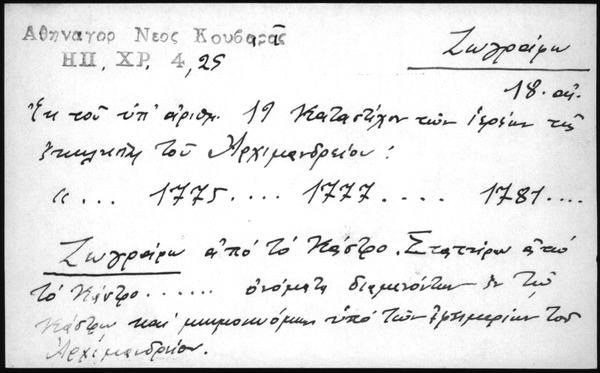 Αθηναγορ Νεος Κουβαρᾶς
ΗΠ. ΧΡ. 4, 25
Ζωγράφω
18. αἰ.
Ἐκ τοῦ ὑπ' ἀριθμ. 19 Κατάστιχον τῶν ἱερέων τῆς
τοῦ Ἀρχιμανδρείου:
" ... 1775 .... 1777 .... 1781 ....
Ζωγράφω ἀπό τό Κάστρο. Σταυτέρω ἀπό
τό Κάστρο ...... ὀνόματα διαμενόντων ἐν τῷ
Κάστρῳ καί μνημονευόμενα ὑπό τῶν ἐφημερίων τοῦ
Ἀρχιμανδρείου.